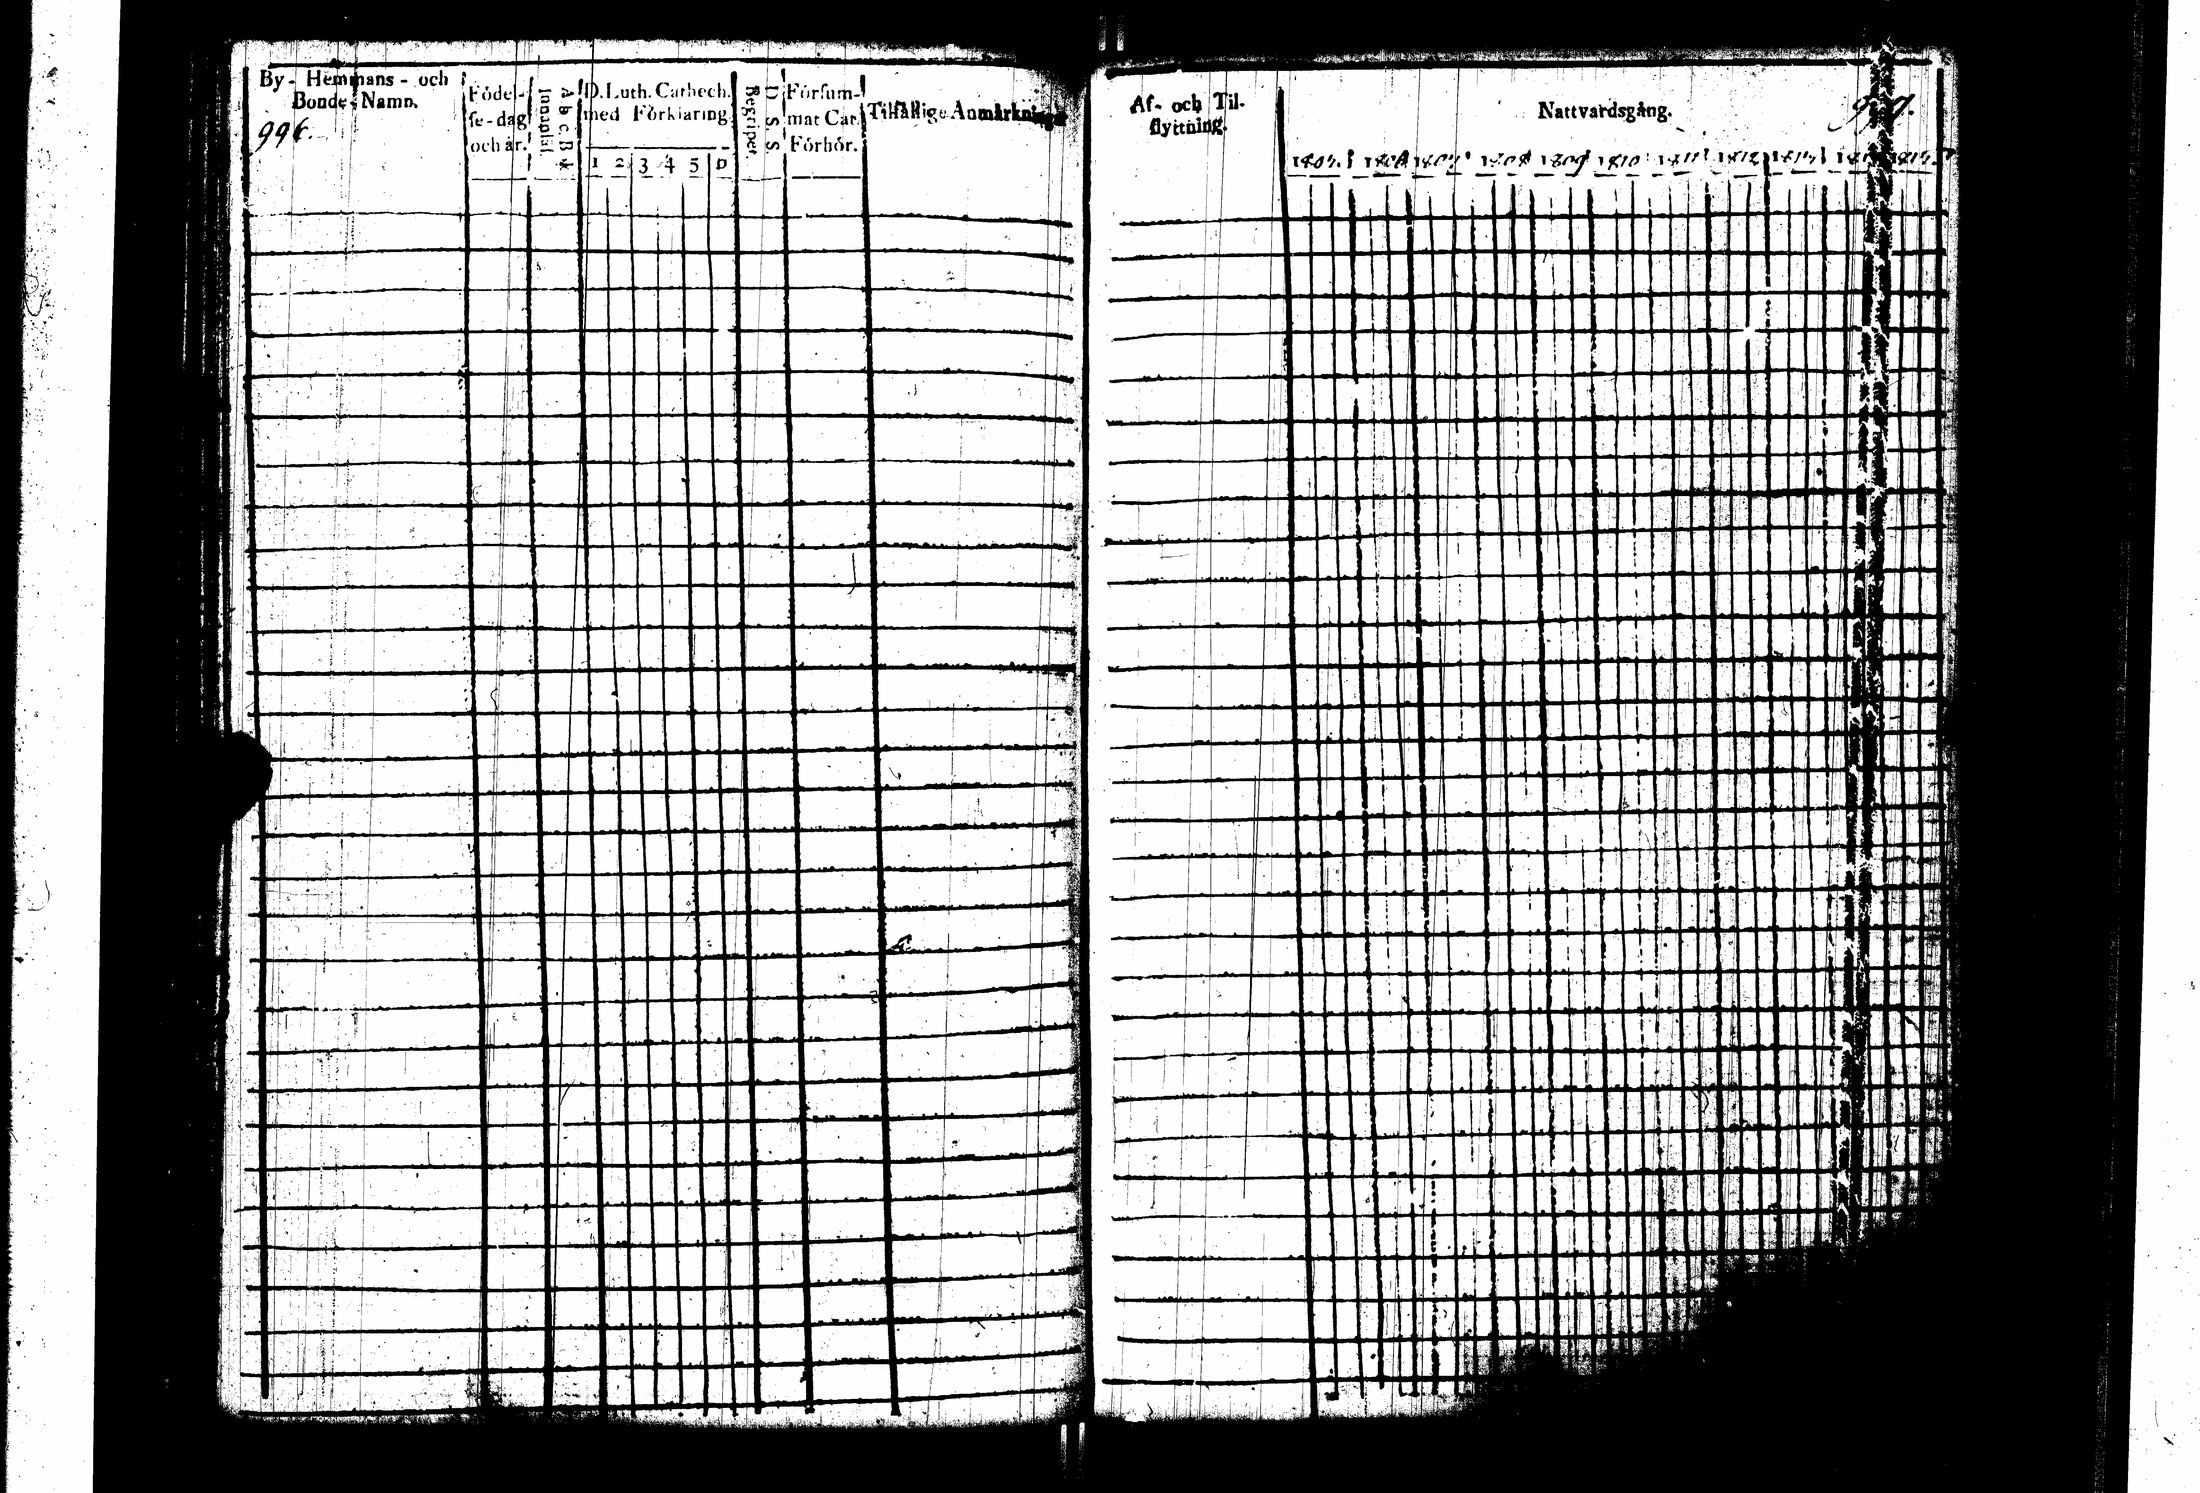 By- Hemmans- och
Bonde-Namn.
996.
Födel-
se-dag
och år.
Innanläs.
A b c B k
D. Luth. Cathech.
med Förklaring
1 2 3 4 5 D
Begriper.
D S S
Försum-
mat Cat.
Förhör.
Tilfällige Anmärkningar
Af- och Til-
flyttning.
Nattvardsgång.
1805. 1806 1807 1808 1809 1810 1811 1812 1813 1815.